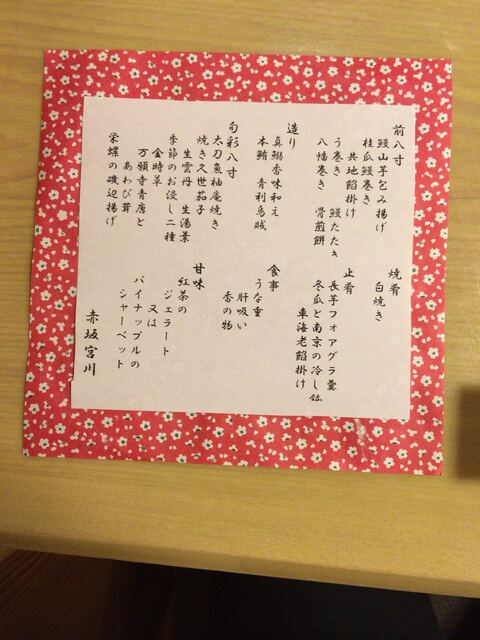 前八寸
鰻山芋包み揚げ
桂瓜鰻巻き
共地餡掛け
う巻き 鰻たたき
八幡巻き 骨煎餅
造り
真鰯香味和え
本鮪 青利烏賊
旬彩八寸
太刀魚柚庵焼き
焼き久世茄子
生雲丹 生湯葉
季節のお浸し二種
金時草
万願寺青唐と
あわび茸
栄螺の磯辺揚げ
焼肴
白焼き
止肴
長芋フォアグラ羹
冬瓜と南京の冷し鉢
車海老餡掛け
食事
うな重
肝吸い
香の物
甘味
紅茶の
ジェラート
又は
パイナップルの
シャーベット
赤坂宮川